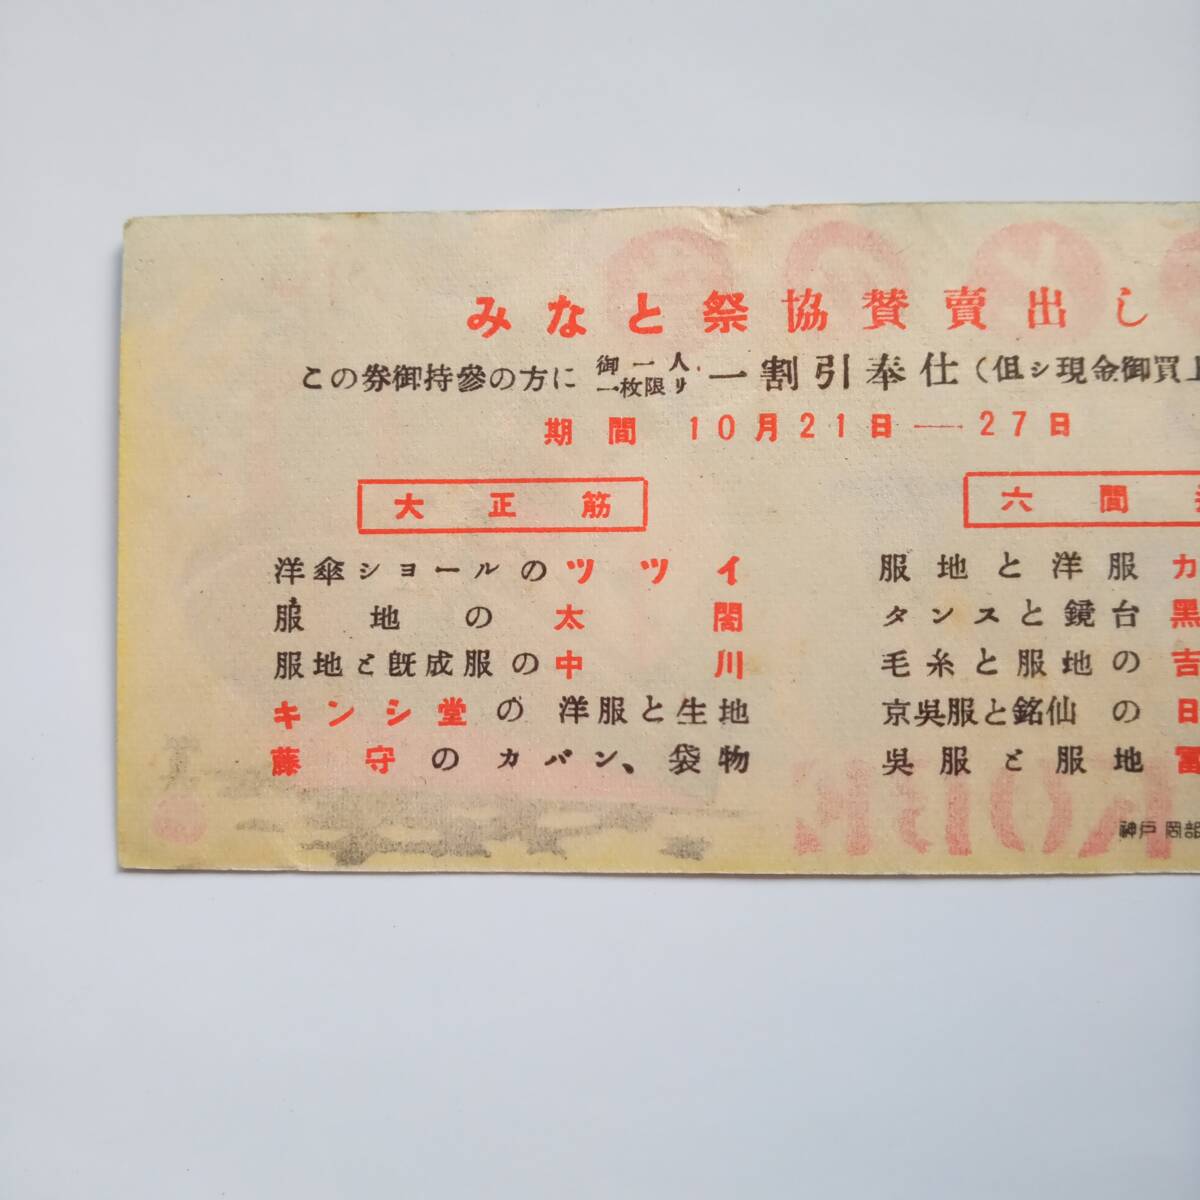 みなと祭協賛賣出し
この券御持參の方に 御一人一枚限リ 一割引奉仕(但シ現金御買上
期間 10月21日—27日
大正筋
洋傘ショールのツツイ
服地の太閤
服地と既成服の中川
キンシ堂の洋服と生地
藤守のカバン、袋物
六間
服地と洋服カ
タンスと鏡台黑
毛糸と服地の吉
京呉服と銘仙の日
呉服と服地冨
神戸 岡部
KOBE